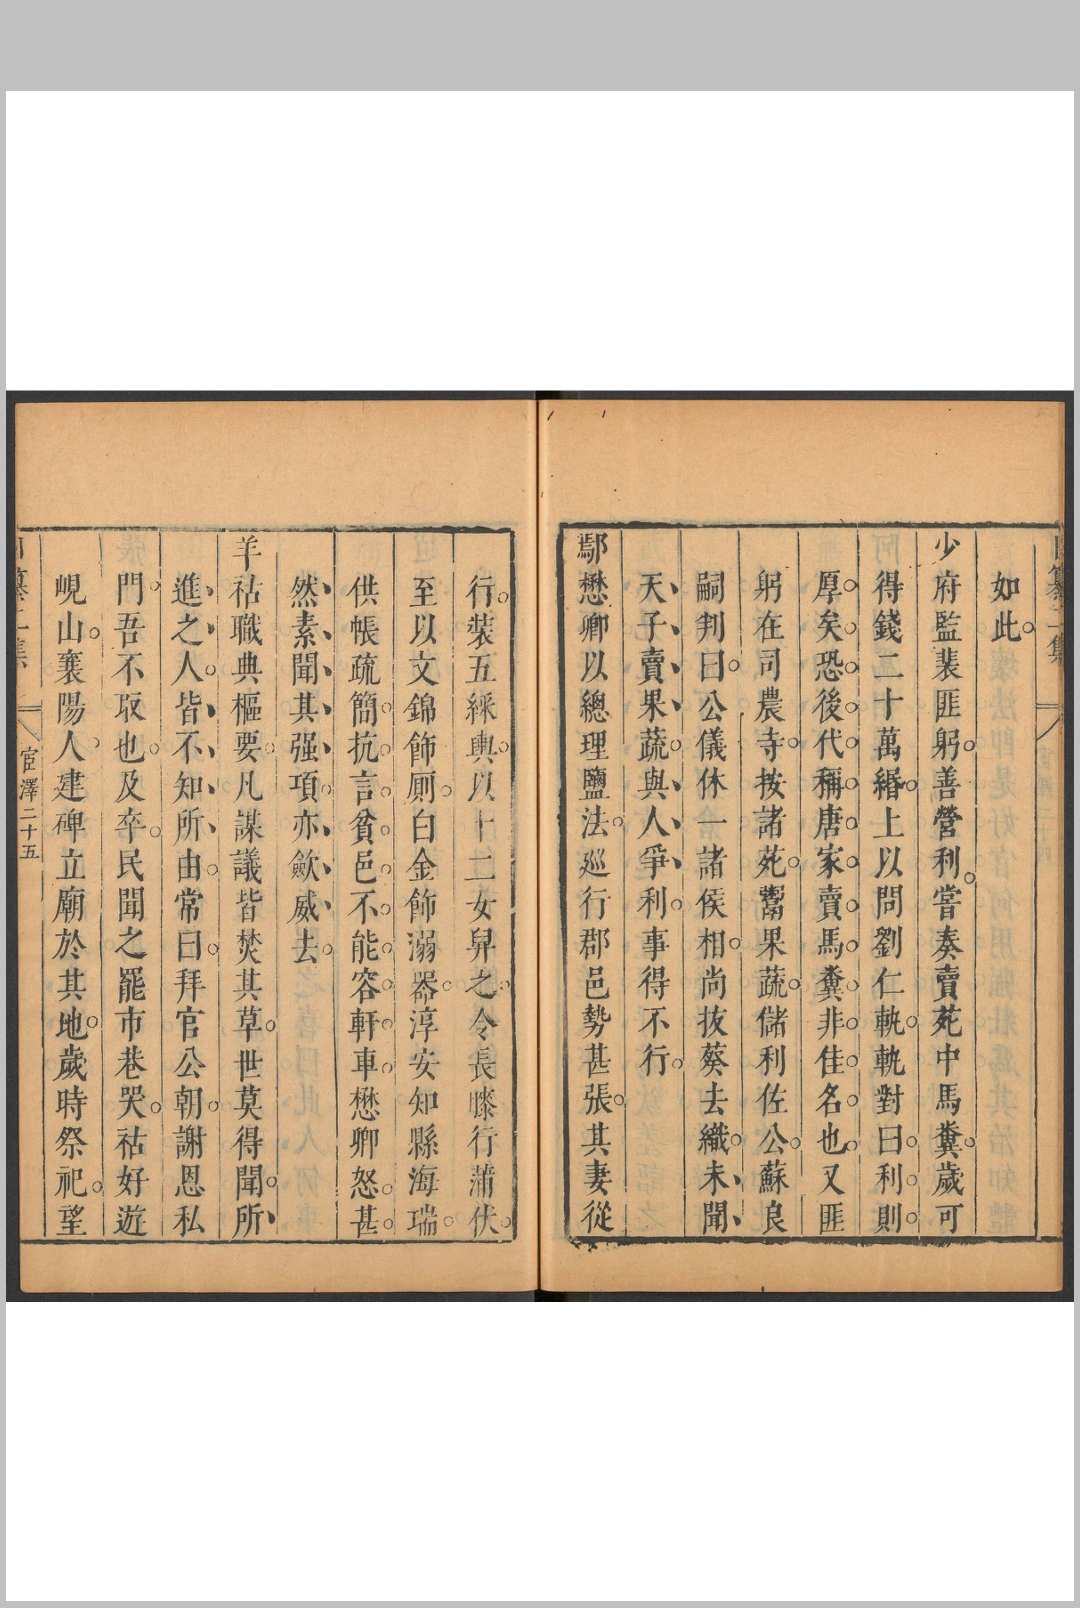 如此
少府監裴匪躬善營利嘗奏賣苑中馬糞歲可
得錢二十萬緡上以問劉仁軌軌對曰利則
厚矣恐後代稱唐家賣馬糞非佳名也又匪
躬在司農寺按諸苑鬻果蔬儲利佐公蘇良
嗣判曰公儀休一諸侯相尚拔葵去織未聞
天子賣果蔬與人爭利事得不行
鄢懋卿以總理鹽法巡行郡邑勢甚張其妻從
行裝五綵輿以十二女舁之令長膝行蒲伏
至以文錦飾厠白金飾溺器淳安知縣海瑞
供帳疏簡抗言貧邑不能容軒車懋卿怒甚
然素聞其强項亦歛威去
羊祜職典樞要凡謀議皆焚其草世莫得聞所
進之人皆不知所由常曰拜官公朝謝恩私
門吾不取也及卒民聞之罷市巷哭祜好遊
峴山襄陽人建碑立廟於其地歲時祭祀望
宦澤二十五